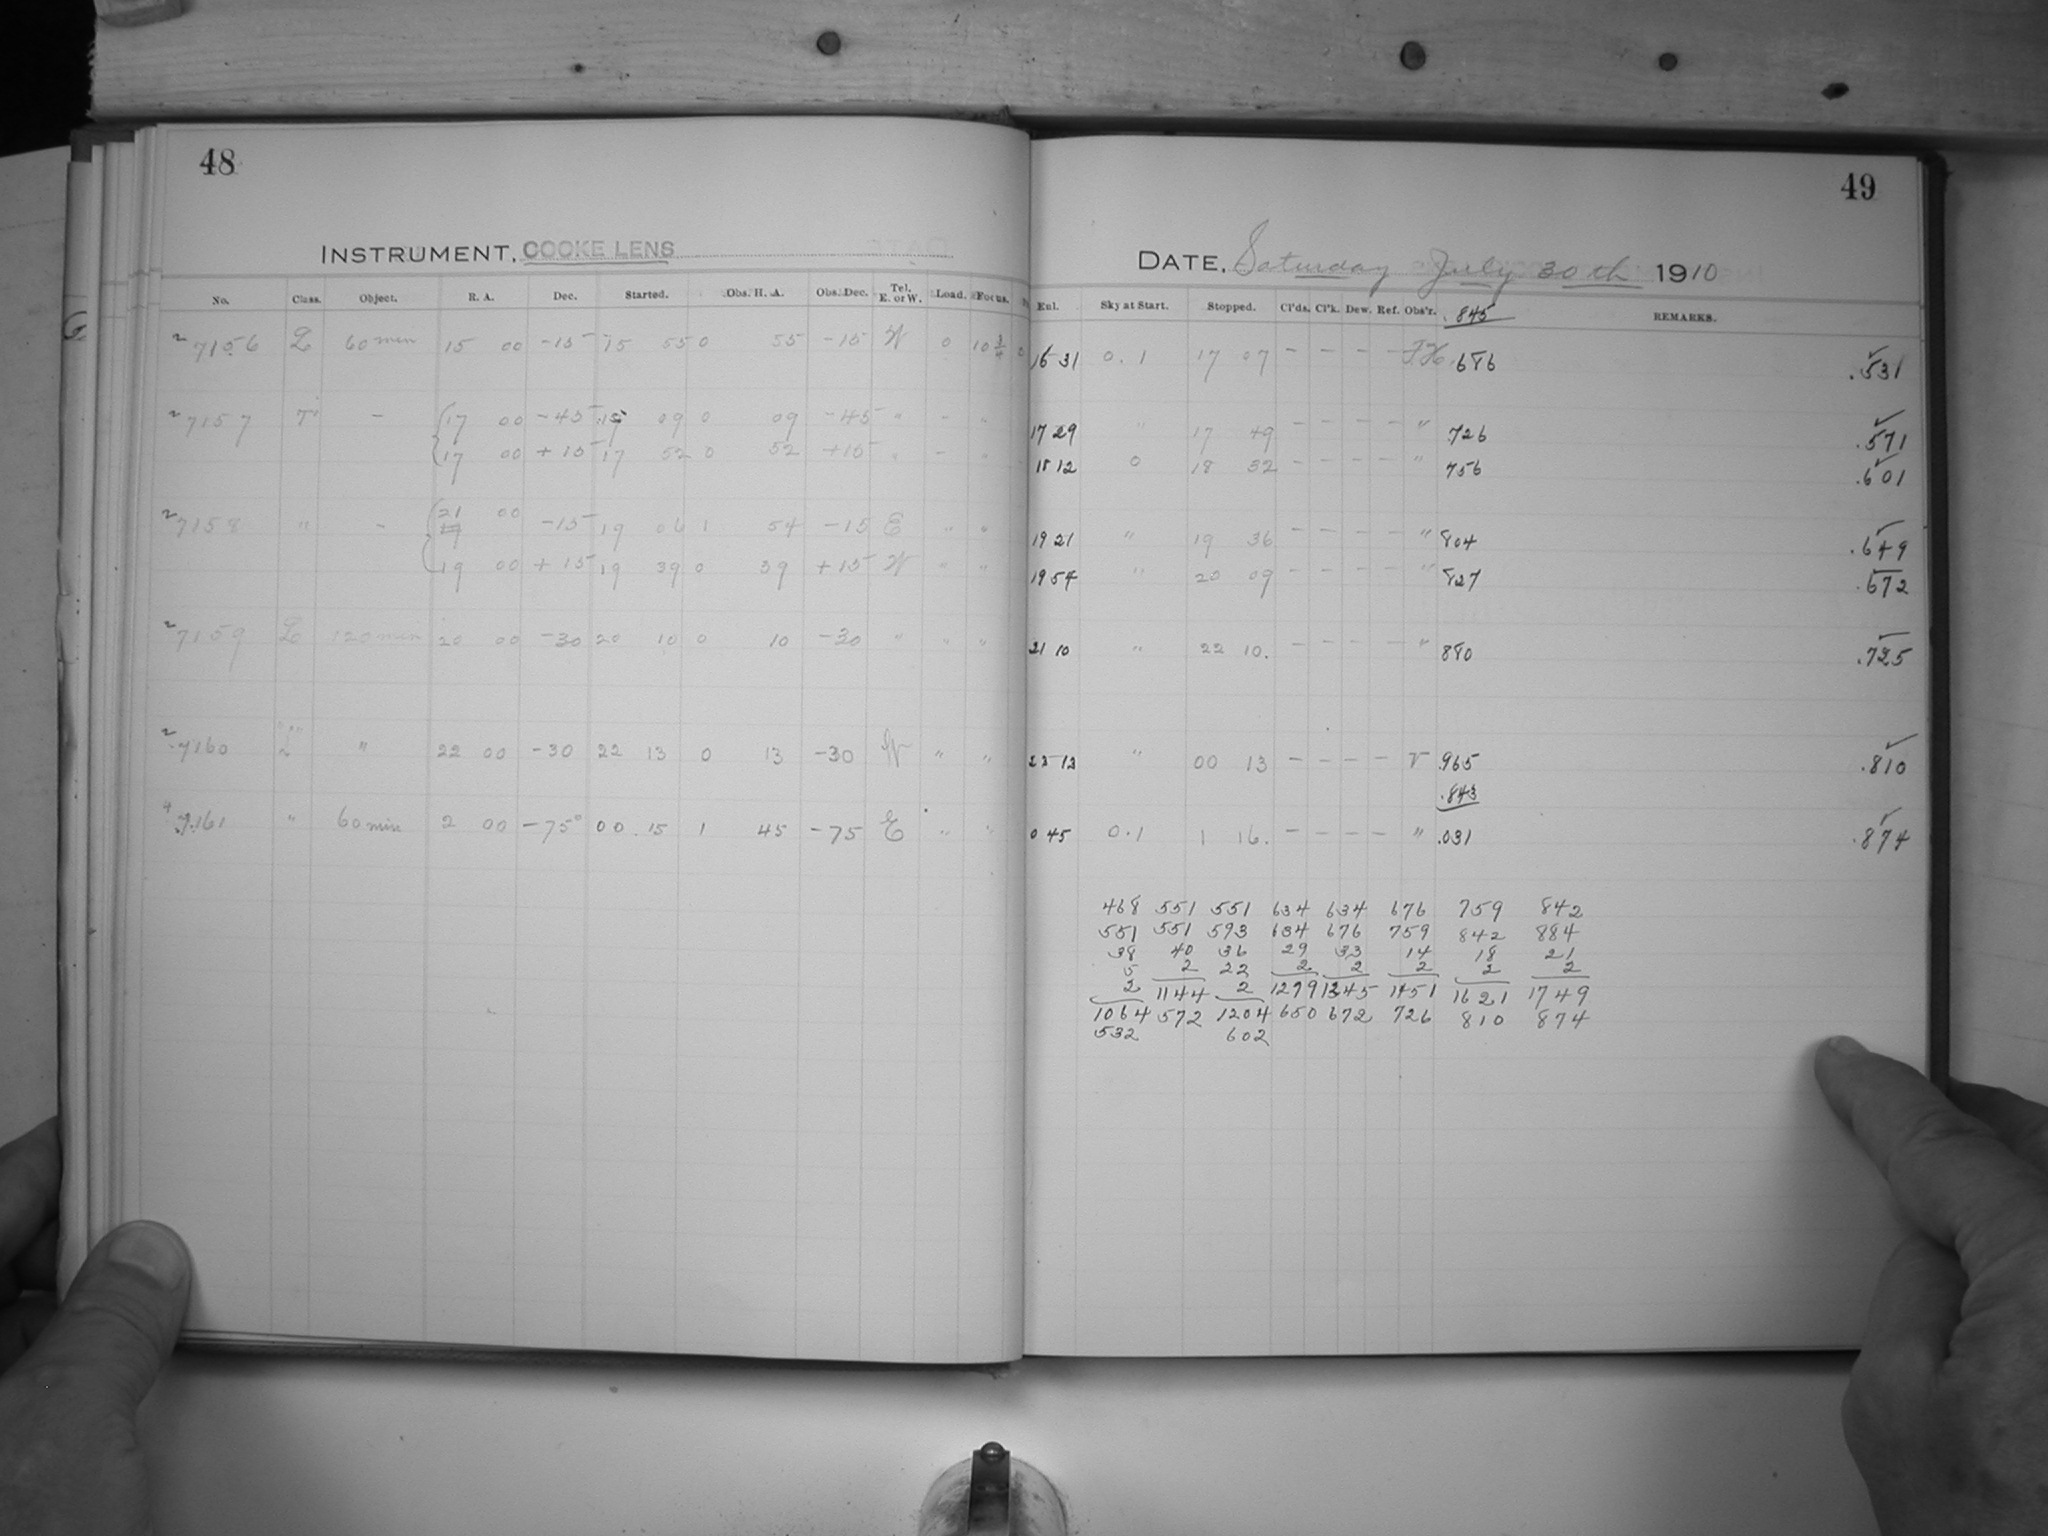 48
INSTRUMENT, COOKE LENS
No. Class. Object. R. A. Dec. Started. Obs. H. A. Obs. Dec. Tel. E. or W. Load. Focus.
7156 L 60 min 15 00 -15 15 55 0 55 -15 W 0 10 3/4
7157 - 17 00 -45 09 0 09 -45 " - "
17 00 + 15 17 52 0 52 +15 " - "
7158 " - 21 00 -15 19 06 1 54 -15 E " "
19 00 + 15 19 39 0 39 +15 W " "
7159 L 120 min 20 00 -30 20 10 0 10 -30 " " "
7160 " 22 00 -30 22 13 0 13 -30 W " "
7161 " 60 min 2 00 -75° 00 15 1 45 -75 E " "
49
DATE, Saturday July 30th 1910
Enl. Sky at Start. Stopped. Cl'ds. Cl'k. Dew. Ref. Obs'r. .845 REMARKS.
16 31 0.1 17 07 - - - - .686 .531
17 29 " 17 49 - - - - " .726 .571
18 12 0 18 32 - - - - " 756 .601
19 21 " 19 36 - - - - " 804 .649
19 54 " 20 09 - - - - " 827 .672
21 10 " 22 10. - - - - " 880 .725
" 00 13 - - - - .965 .810
.843
0 45 0.1 1 16. - - - - " .031 .874
468 551 551 634 634 676 759 842
551 551 593 634 676 759 842 884
38 40 36 29 33 14 18 21
5 2 22 2 2 2 2 2
2 1144 2 1299 1345 1451 1621 1749
1064 572 1204 650 672 726 810 874
532 602